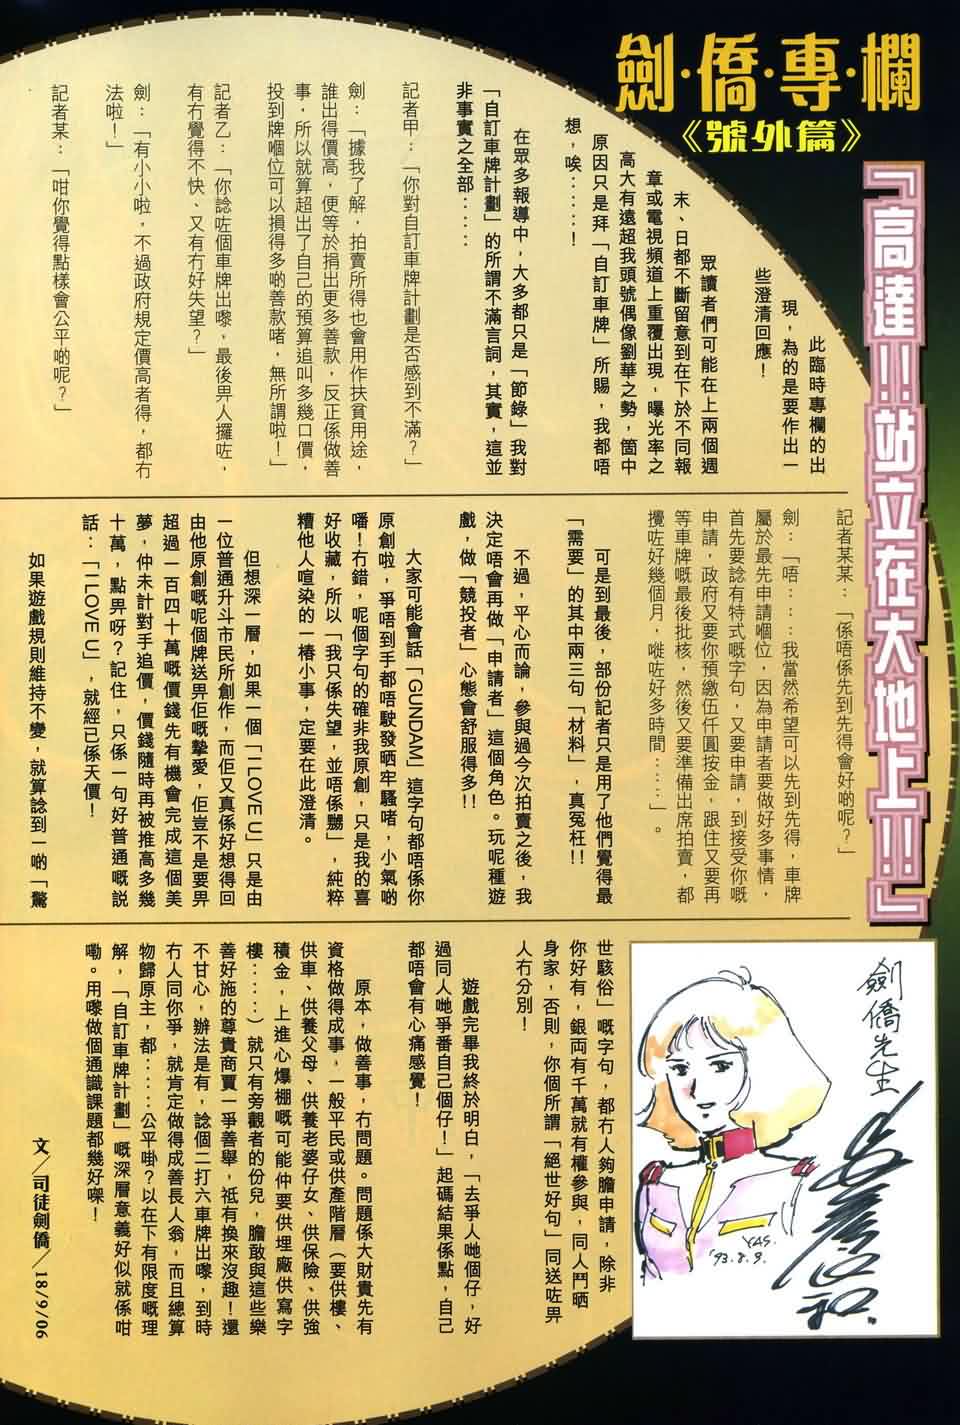 劍·僑·專·欄
《號外篇》
『高達!!站立在大地上!!』
此臨時專欄的出
現，為的是要作出一
些澄清回應！
眾讀者們可能在上兩個週
末、日都不斷留意到在下於不同報
章或電視頻道上重覆出現，曝光率之
高大有遠超我頭號偶像劉華之勢，箇中
原因只是拜「自訂車牌」所賜，我都唔
想，唉……！
在眾多報導中，大多都只是「節錄」我對
「自訂車牌計劃」的所謂不滿言詞，其實，這並
非事實之全部……
記者甲：「你對自訂車牌計劃是否感到不滿？」
劍：「據我了解，拍賣所得也會用作扶貧用途，
誰出得價高，便等於捐出更多善款，反正係做善
事，所以就算超出了自己的預算追叫多幾口價，
投到牌嗰位可以損得多啲善款啫，無所謂啦！」
記者乙：「你諗咗個車牌出嚟，最後畀人攞咗，
有冇覺得不快、又有冇好失望？」
劍：「有小小啦，不過政府規定價高者得，都冇
法啦！」
記者某：「咁你覺得點樣會公平啲呢？」
記者某某：「係唔係先到先得會好啲呢？」
劍：「唔……我當然希望可以先到先得，車牌
屬於最先申請嗰位，因為申請者要做好多事情，
首先要諗有特式嘅字句，又要申請，到接受你嘅
申請，政府又要你預繳伍仟圓按金，跟住又要再
等車牌嘅最後批核，然後又要準備出席拍賣，都
攪咗好幾個月，嘥咗好多時間……」。
可是到最後，部份記者只是用了他們覺得最
「需要」的其中兩三句「材料」，真冤枉!!
不過，平心而論，參與過今次拍賣之後，我
決定唔會再做「申請者」這個角色。玩呢種遊
戲，做「競投者」心態會舒服得多!!
大家可能會話「GUNDAM」這字句都唔係你
原創啦，爭唔到手都唔駛發晒牢騷啫，小氣啲
噃！冇錯，呢個字句的確非我原創，只是我的喜
好收藏，所以「我只係失望，並唔係嬲」，純粹
糟他人喧染的一樁小事，定要在此澄清。
但想深一層，如果一個「I LOVE U」只是由
一位普通升斗市民所創作，而佢又真係好想得回
由他原創嘅呢個牌送畀佢嘅摯愛，佢豈不是要畀
超過一百四十萬嘅價錢先有機會完成這個美
夢，仲未計對手追價，價錢隨時再被推高多幾
十萬，點畀呀？記住，只係一句好普通嘅説
話：「I LOVE U」，就經已係天價！
如果遊戲規則維持不變，就算諗到一啲「驚
世駭俗」嘅字句，都冇人夠膽申請，除非
你好有，銀両有千萬就有權參與，同人鬥晒
身家，否則，你個所謂「絕世好句」同送咗畀
人冇分別！
遊戲完畢我終於明白，「去爭人哋個仔，好
過同人哋爭番自己個仔！」起碼結果係點，自己
都唔會有心痛感覺！
原本，做善事，冇問題。問題係大財貴先有
資格做得成事，一般平民或供產階層（要供樓、
供車、供養父母、供養老婆仔女、供保險、供強
積金，上進心爆棚嘅可能仲要供埋廠供寫字
樓……）就只有旁觀者的份兒，膽敢與這些樂
善好施的尊貴商賈一爭善舉，祗有換來沒趣！還
不甘心，辦法是有，諗個二打六車牌出嚟，到時
冇人同你爭，就肯定做得成善長人翁，而且總算
物歸原主，都……公平啩？以在下有限度嘅理
解，「自訂車牌計劃」嘅深層意義好似就係咁
嘞。用嚟做個通識課題都幾好㗎！
文／司徒劍僑／18/9/06
劍僑先生
YAS.
'93.8.9.